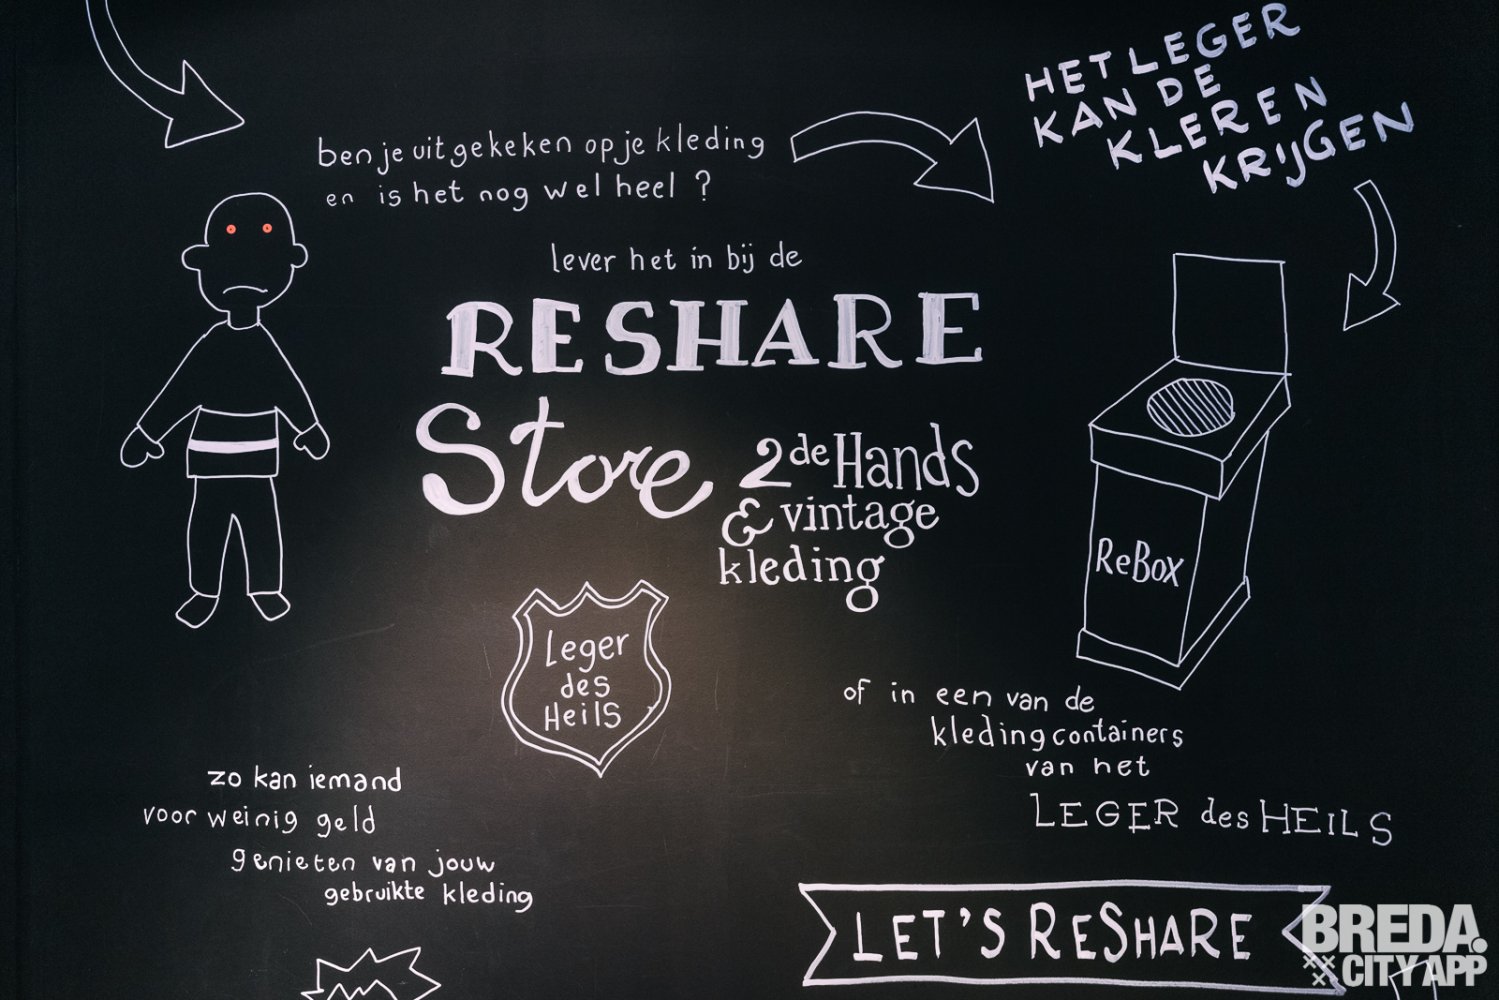 HET LEGER
KAN DE
KLEREN
KRIJGEN
ben je uitgekeken op je kleding
en is het nog wel heel ?
lever het in bij de
RESHARE
Store
2de Hands
& vintage
kleding
ReBox
Leger
des
Heils
of in een van de
kledingcontainers
van het
LEGER des HEILS
zo kan iemand
voor weinig geld
genieten van jouw
gebruikte kleding
LET'S RESHARE
BREDA.
CITY APP